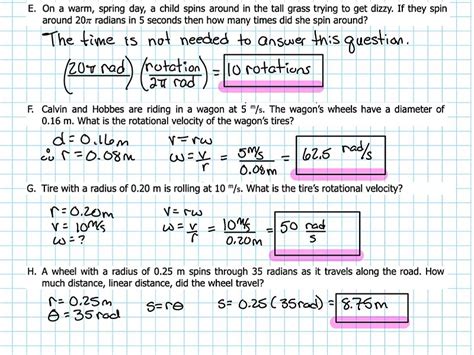 E. On a warm, spring day, a child spins around in the tall grass trying to get dizzy. If they spin
around 20π radians in 5 seconds then how many times did she spin around?
The time is not needed to answer this question.
(20π rad) (rotation / 2π rad) = 10 rotations
F. Calvin and Hobbes are riding in a wagon at 5 m/s. The wagon's wheels have a diameter of
0.16 m. What is the rotational velocity of the wagon's tires?
d = 0.16m V = rω
∴ r = 0.08m ω = v/r = 5 m/s / 0.08m = 62.5 rad/s
G. Tire with a radius of 0.20 m is rolling at 10 m/s. What is the tire's rotational velocity?
r = 0.20m V = rω
V = 10 m/s ω = v/r = 10 m/s / 0.20m = 50 rad/s
ω = ?
H. A wheel with a radius of 0.25 m spins through 35 radians as it travels along the road. How
much distance, linear distance, did the wheel travel?
r = 0.25m S = rθ S = 0.25 (35rad) = 8.75m
θ = 35 rad